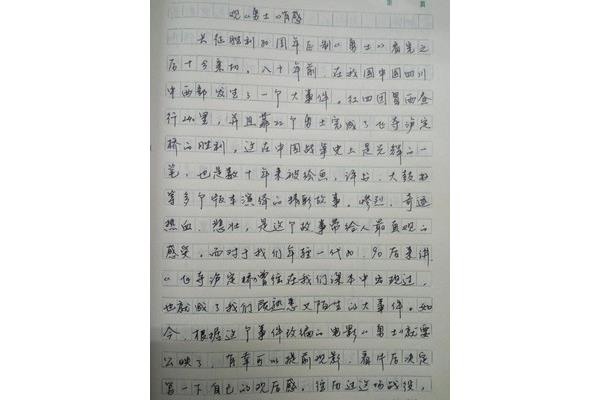 观《勇士》有感
长征胜利80周年巨制《勇士》看完之
后十分亲切，八十年前，在我国中国四川
中西部发生了一个大事件。红四团冒雨奔
行240里，并且靠22个勇士完成了飞夺泸定
桥的胜利，这在中国战争史上是光辉的一
笔，也是数十年来被绘画，评书，大鼓书
等多个版本演绎的精彩故事，惨烈、奇迹
热血、悲壮，是这个故事带给人最直观的
感受，而对于我们年轻一代80、90后来讲，
《飞夺泸定桥》曾经在我们课本中出现过，
也就成了我们既熟悉又陌生的大事件。如
今，根据这个事件改编的电影《勇士》就要
公映了，有幸可以提前观影，看片后决定
写一下自己的观后感，经历过这场战役，